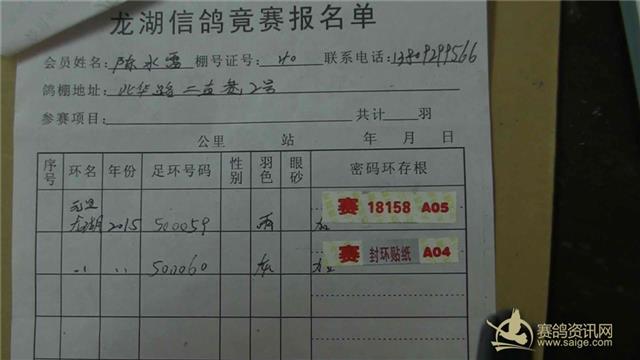 龙湖信鸽竞赛报名单
会员姓名: 陈水雷 棚号证号: 40 联系电话: 13809299566
鸽棚地址: 北华路二直巷2号
参赛项目: 共计 羽
公里 站 年 月 日
序号 环名 年份 足环号码 性别 羽色 眼砂 密码环存根
龙湖 2015 500059 雨 赛 18158 A05
" " 500060 灰 赛 封环贴纸 A04
赛鸽资讯网
www.saige.com